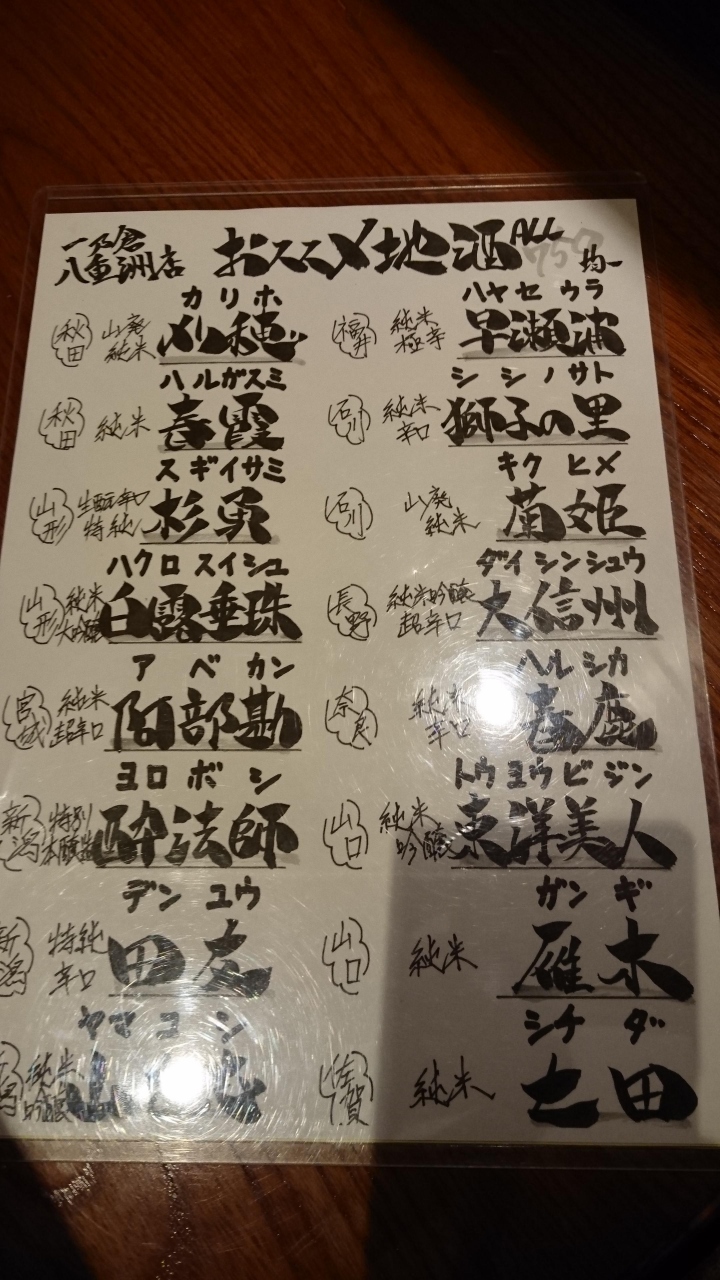 一乃倉
八重洲店
おススメ地酒 ALL 750 均一
カリホ
秋田 山廃 純米 刈穂
ハルガスミ
秋田 純米 春霞
スギイサミ
山形 生酛辛口 特純 杉勇
ハクロスイシュ
山形 純米 大吟醸 白露垂珠
アベカン
宮城 純米 超辛口 阿部勘
ヨロボシ
新潟 特別 本醸造 酔法師
デンユウ
新潟 特純 辛口 田友
ヤマコシ
新潟 純米 吟醸 山
ハヤセウラ
福井 純米 極辛 早瀬浦
シシノサト
石川 純米 辛口 獅子の里
キクヒメ
石川 山廃 純米 菊姫
ダイシンシュウ
長野 純米吟醸 超辛口 大信州
ハルシカ
奈良 純米 辛口 春鹿
トウヨウビジン
山口 純米 吟醸 東洋美人
ガンギ
山口 純米 雁木
シチダ
佐賀 純米 七田